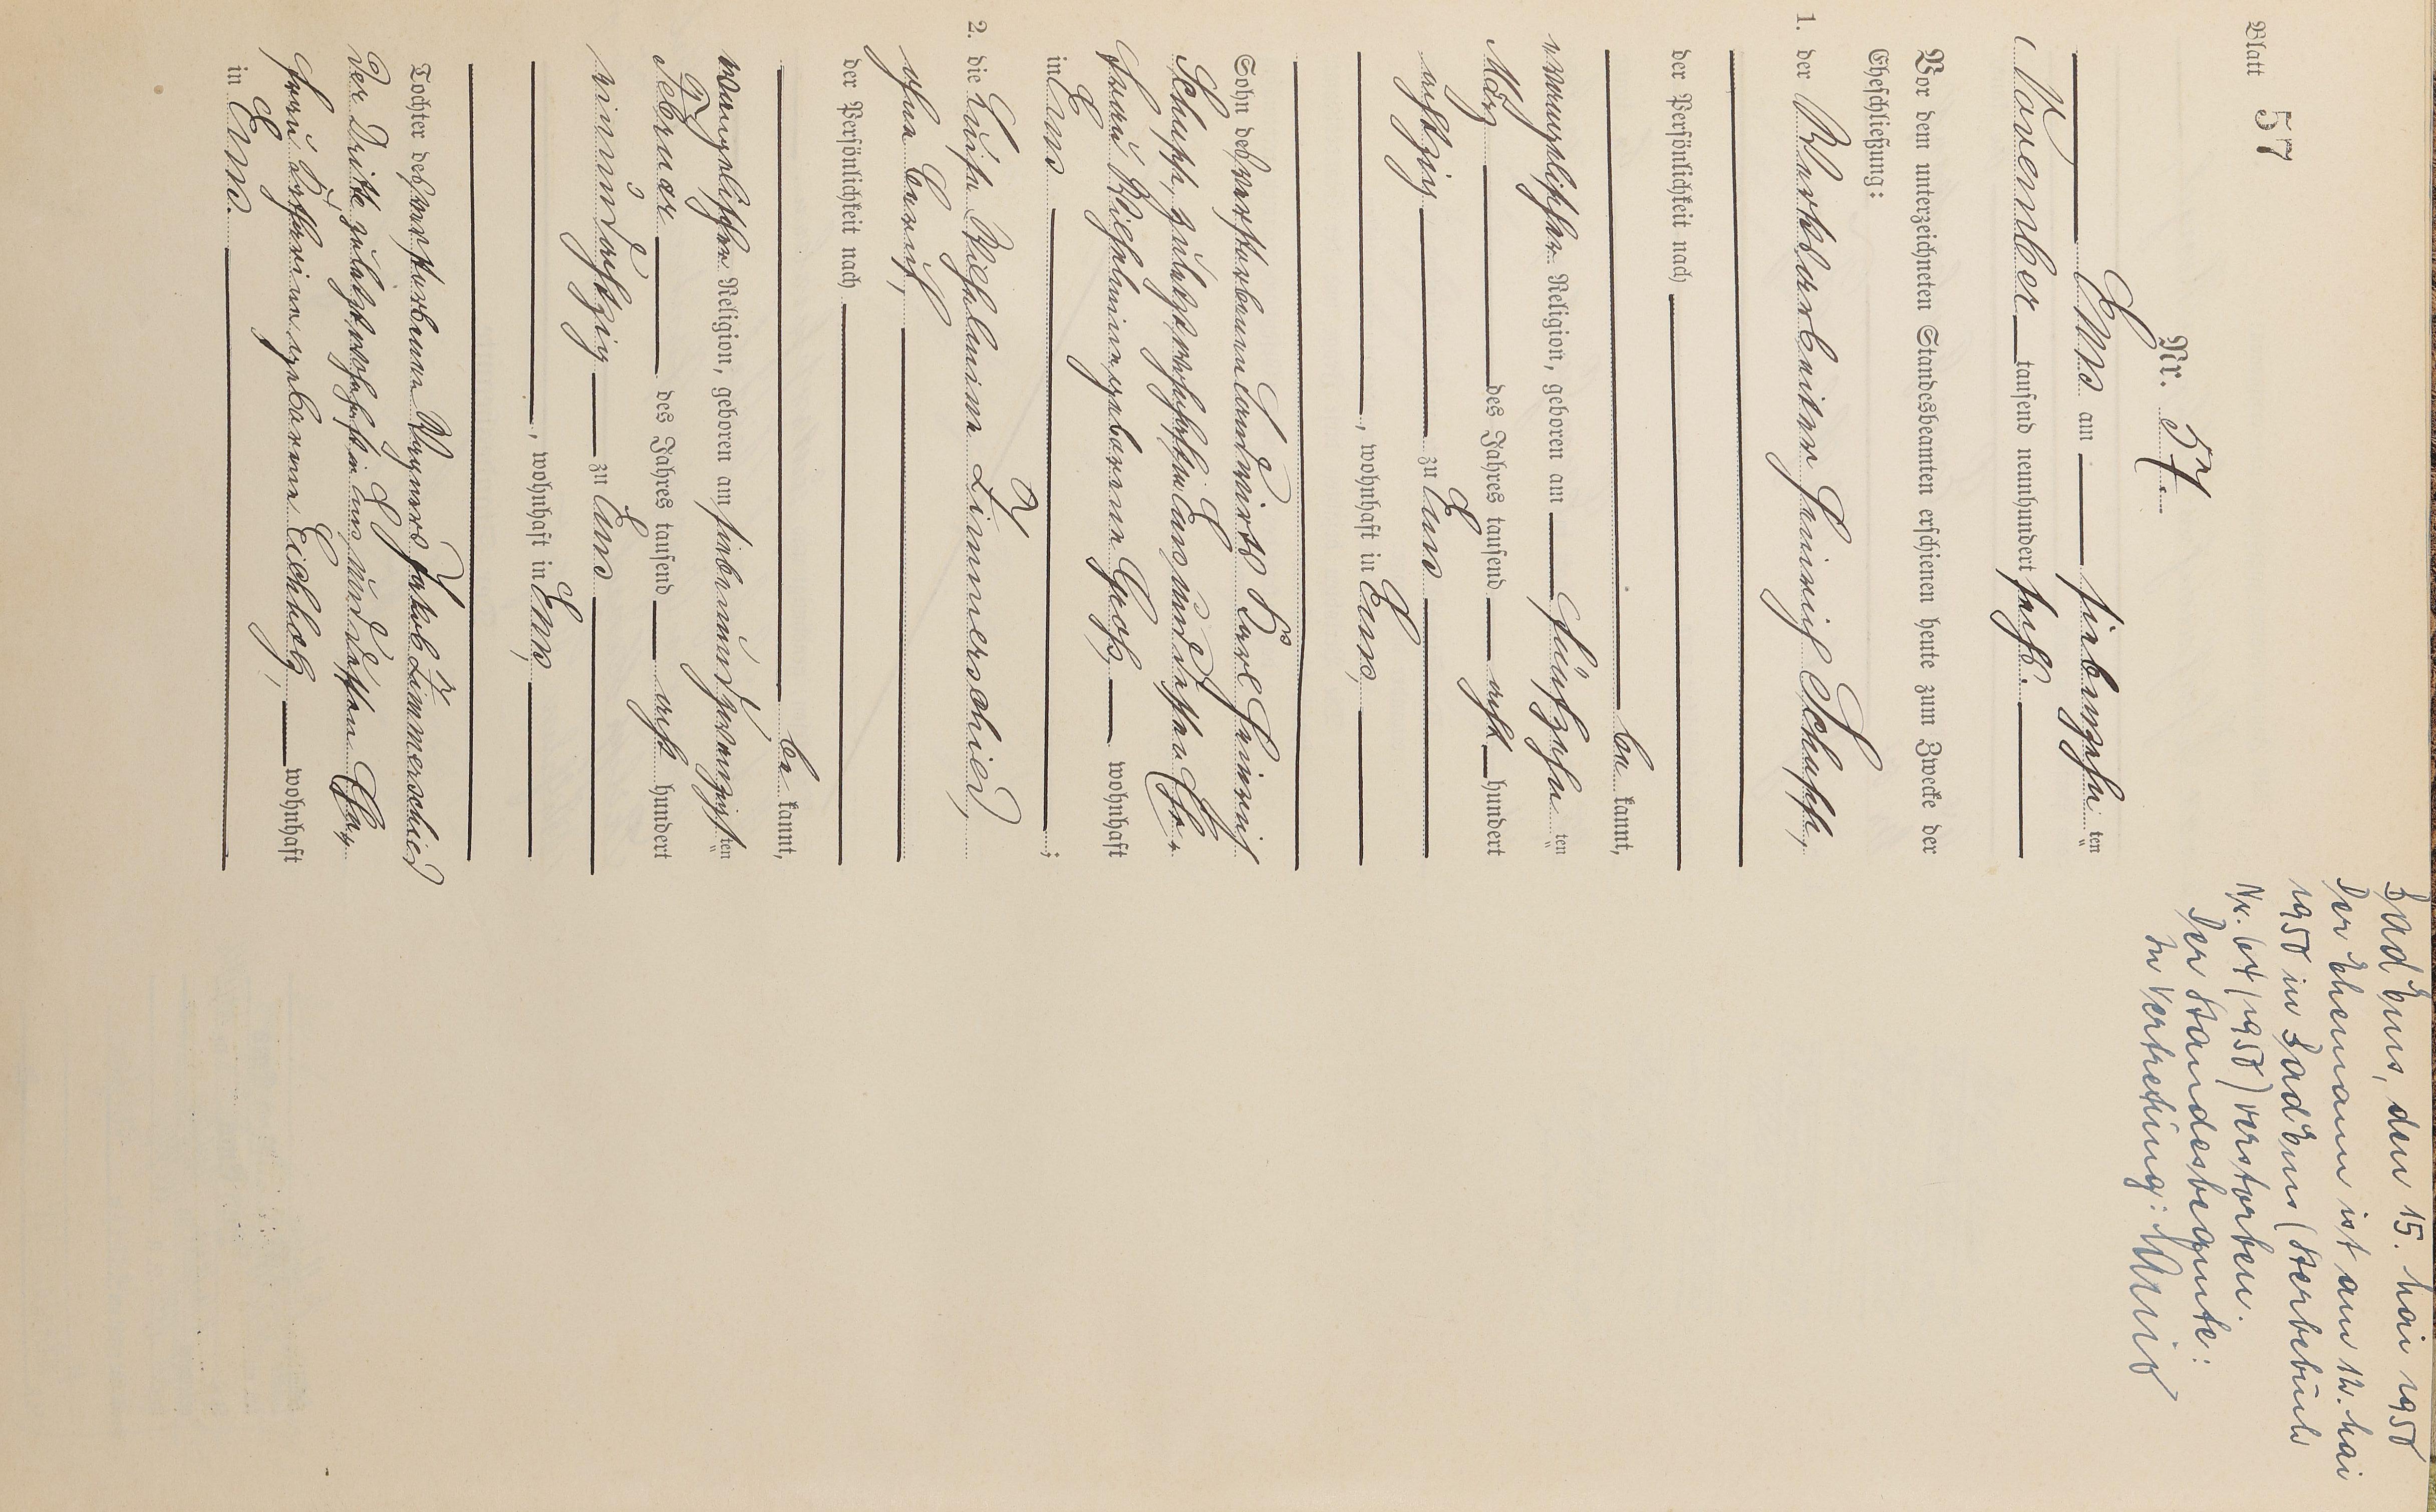 Blatt 57
Nr. 57.
Ems am siebenzehn ten
November tausend neunhundert sechs.
Vor dem unterzeichneten Standesbeamten erschienen heute zum Zwecke der
Eheschließung:
1. der Werkarbeiter Heinrich Schupp,
der Persönlichkeit nach
be kannt,
evangelischer Religion, geboren am fünfzehn ten
März des Jahres tausend acht hundert
achtzig zu Ems
, wohnhaft in Ems,
Sohn des verstorbenen Landwirts Karl Heinrich
Schupp, zuletzt wohnhaft in Ems und dessen Ehe-
frau Wilhelmine geborene Groß, wohnhaft
in Ems ;
2. die Luise Wilhelmine Zimmerschied,
ohne Beruf,
der Persönlichkeit nach
be kannt,
evangelischer Religion, geboren am siebenundzwanzigsten
Februar des Jahres tausend acht hundert
einundachtzig zu Ems
, wohnhaft in Ems,
Tochter des verstorbenen Wagners Jakob Zimmerschied
der Dritte zuletzt wohnhaft in Ems und dessen Ehe-
frau Katharine geborene Eichholz, wohnhaft
in Ems.
Bad Ems, den 15. Mai 1950
Der Ehemann ist am 12. Mai
1950 in Bad Ems (Sterbebuch
Nr. 64/1950) verstorben.
Der Standesbeamte:
In Vertretung: